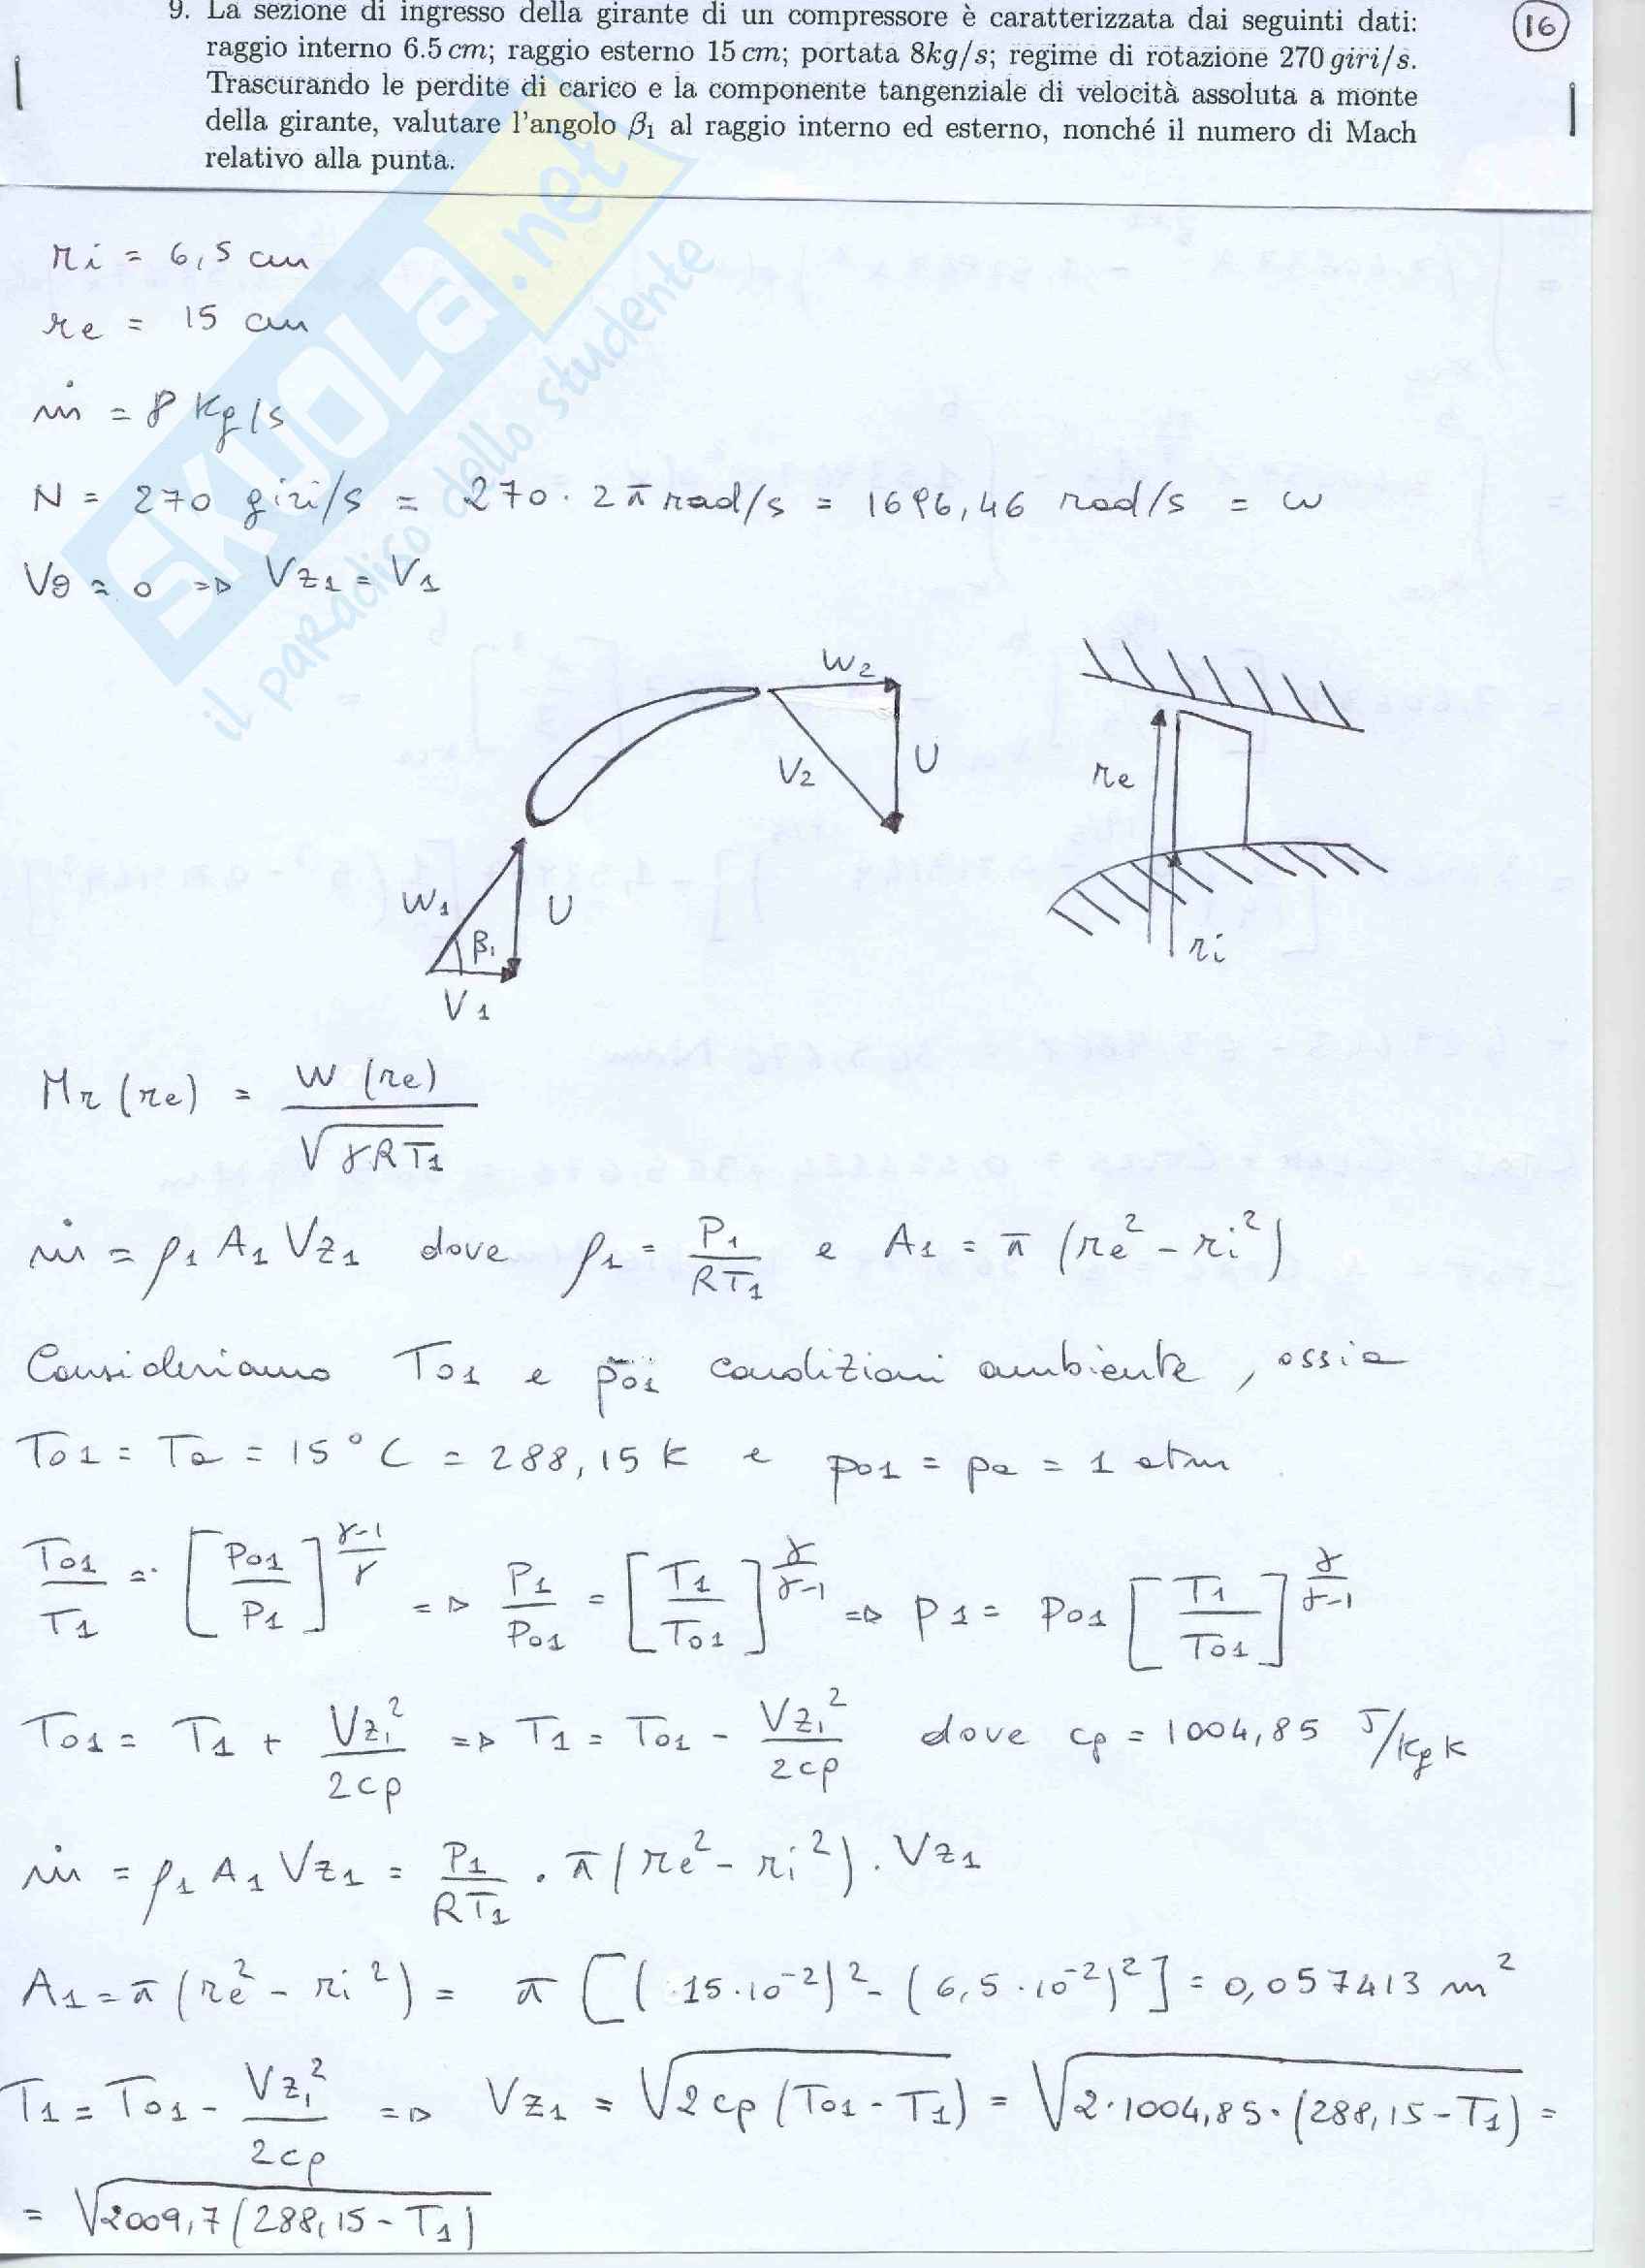 9. La sezione di ingresso della girante di un compressore è caratterizzata dai seguenti dati:
raggio interno 6.5 cm; raggio esterno 15 cm; portata 8kg/s; regime di rotazione 270 giri/s.
Trascurando le perdite di carico e la componente tangenziale di velocità assoluta a monte
della girante, valutare l'angolo β₁ al raggio interno ed esterno, nonché il numero di Mach
relativo alla punta.
16
SKUOLA.net
il paradiso dello studente
ri = 6,5 cm
re = 15 cm
ṁ = 8 Kg/s
N = 270 giri/s = 270 · 2π rad/s = 1696,46 rad/s = ω
Vθ = 0 => Vz1 = V1
W2
V2
U
W1
β1
U
V1
re
ri
Mr (re) = W (re) / √(γRT1)
ṁ = ρ1 A1 Vz1 dove ρ1 = P1 / RT1 e A1 = π (re² - ri²)
Consideriamo To1 e po1 condizioni ambiente, ossia
To1 = Ta = 15°C = 288,15 K e po1 = pa = 1 atm
To1 / T1 = [Po1 / P1]^((γ-1)/γ) => P1 / Po1 = [T1 / To1]^(γ/(γ-1)) => P1 = Po1 [T1 / To1]^(γ/(γ-1))
To1 = T1 + Vz1² / 2cp => T1 = To1 - Vz1² / 2cp dove cp = 1004,85 J/kg K
ṁ = ρ1 A1 Vz1 = P1 / RT1 · π (re² - ri²) · Vz1
A1 = π (re² - ri²) = π [(15·10⁻²)² - (6,5·10⁻²)²] = 0,057413 m²
T1 = To1 - Vz1² / 2cp => Vz1 = √(2cp (To1 - T1)) = √(2·1004,85·(288,15 - T1)) =
= √(2009,7 (288,15 - T1))